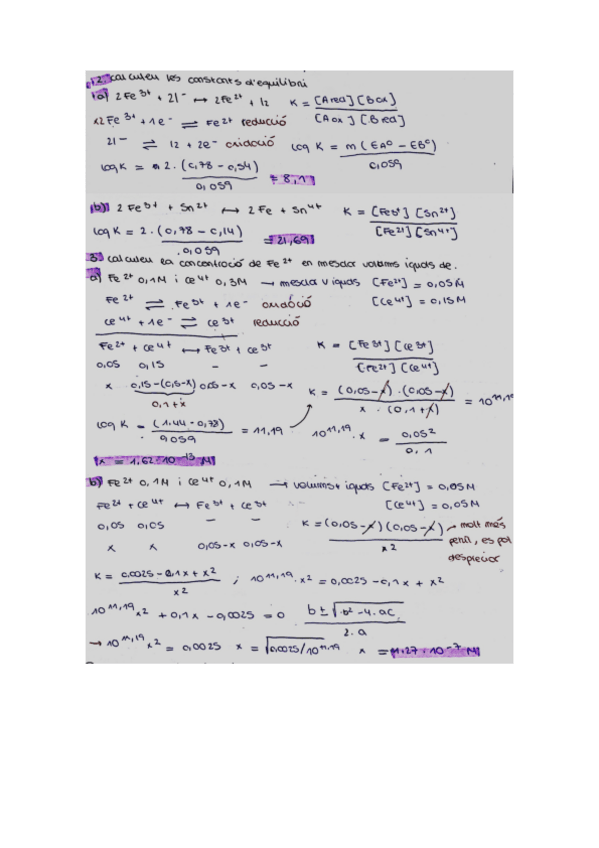 2. calculeu les constants d'equilibri
a) 2Fe³⁺ + 2I⁻ ↔ 2Fe²⁺ + I2 K = [Ared][Box] / [Aox][Bred]
x2Fe³⁺ + 1e⁻ ⇌ Fe²⁺ reducció
2I⁻ ⇌ I2 + 2e⁻ oxidació log K = m(EAº - EBº) / 0,059
log K = 2·(0,78 - 0,54) / 0,059 = 8,1
b) 2Fe³⁺ + Sn²⁺ ↔ 2Fe + Sn⁴⁺ K = [Fe³⁺][Sn²⁺] / [Fe²⁺][Sn⁴⁺]
log K = 2·(0,78 - 0,14) / 0,059 = 21,69
3. calculeu la concentració de Fe²⁺ en mesclar volums iguals de.
a) Fe²⁺ 0,1M i Ce⁴⁺ 0,3M → mesclar V iguals [Fe²⁺] = 0,05M
Fe²⁺ ⇌ Fe³⁺ + 1e⁻ oxidació [Ce⁴⁺] = 0,15M
Ce⁴⁺ + 1e⁻ ⇌ Ce³⁺ reducció
Fe²⁺ + Ce⁴⁺ ↔ Fe³⁺ + Ce³⁺ K = [Fe³⁺][Ce³⁺] / [Fe²⁺][Ce⁴⁺]
0,05 0,15 - -
x 0,15-(0,5-x) 0,05-x 0,05-x K = (0,05-x)·(0,05-x) / x·(0,1+x) = 10^11,19
0,1+x
log K = (1,44 - 0,78) / 0,059 = 11,19 10^11,19·x = 0,05² / 0,1
x = 1,62·10⁻¹³ M
b) Fe²⁺ 0,1M i Ce⁴⁺ 0,1M → volums iguals [Fe²⁺] = 0,05M
Fe²⁺ + Ce⁴⁺ ↔ Fe³⁺ + Ce³⁺ [Ce⁴⁺] = 0,05M
0,05 0,05 - - K = (0,05-x)(0,05-x) / x² → molt més
x x 0,05-x 0,05-x petit, es pot
despreciar
K = 0,0025 - 0,1x + x² / x² ; 10^11,19·x² = 0,0025 - 0,1x + x²
10^11,19x² + 0,1x - 0,0025 = 0 b ± √b² - 4·ac / 2·a
→ 10^11,19x² = 0,0025 x = √0,0025/10^11,19 x = 1,27·10⁻⁷ M